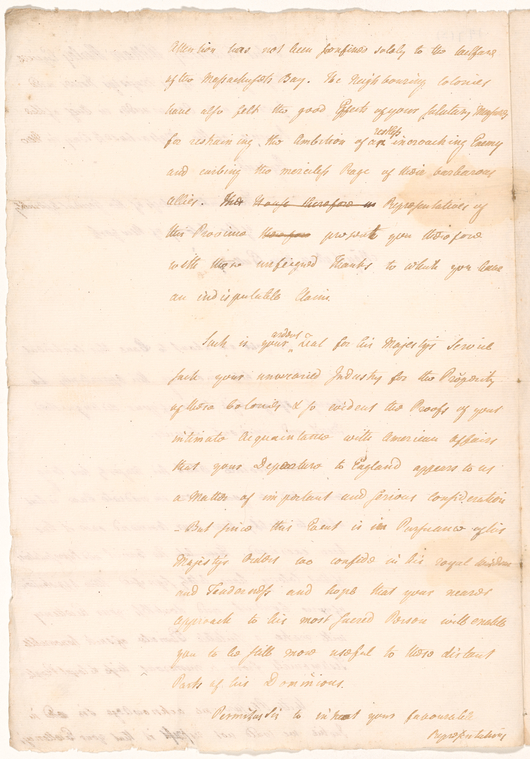 Attention has not been confined solely to the welfare
of the Massachusets Bay. The Neighbouring Colonies
have also felt the good Effects of your salutary Measures
for restraining the Ambition of a restless incroaching Enemy
and curbing the merciless Rage of their barbarous
allies. The House therefore Representatives of
this Province therefore present you therefore
with those unfeigned Thanks to which you have
an indisputable claim
Such is your ardent Zeal for his Majesty's Service
such your unwearied Industry for the Prosperity
of these Colonies & so evident the Proofs of your
intimate Acquaintance with American affairs
that your Departure to England appears to us
a Matter of important and serious consideration
- But since this Event is in Pursuance of his
Majesty's Orders we confide in his royal wisdom
and Tenderness and hope that your nearer
approach to his most Sacred Person will enable
you to be still more useful to these distant
Parts of his Dominions.
Permit us to intreat your favourable
Representations